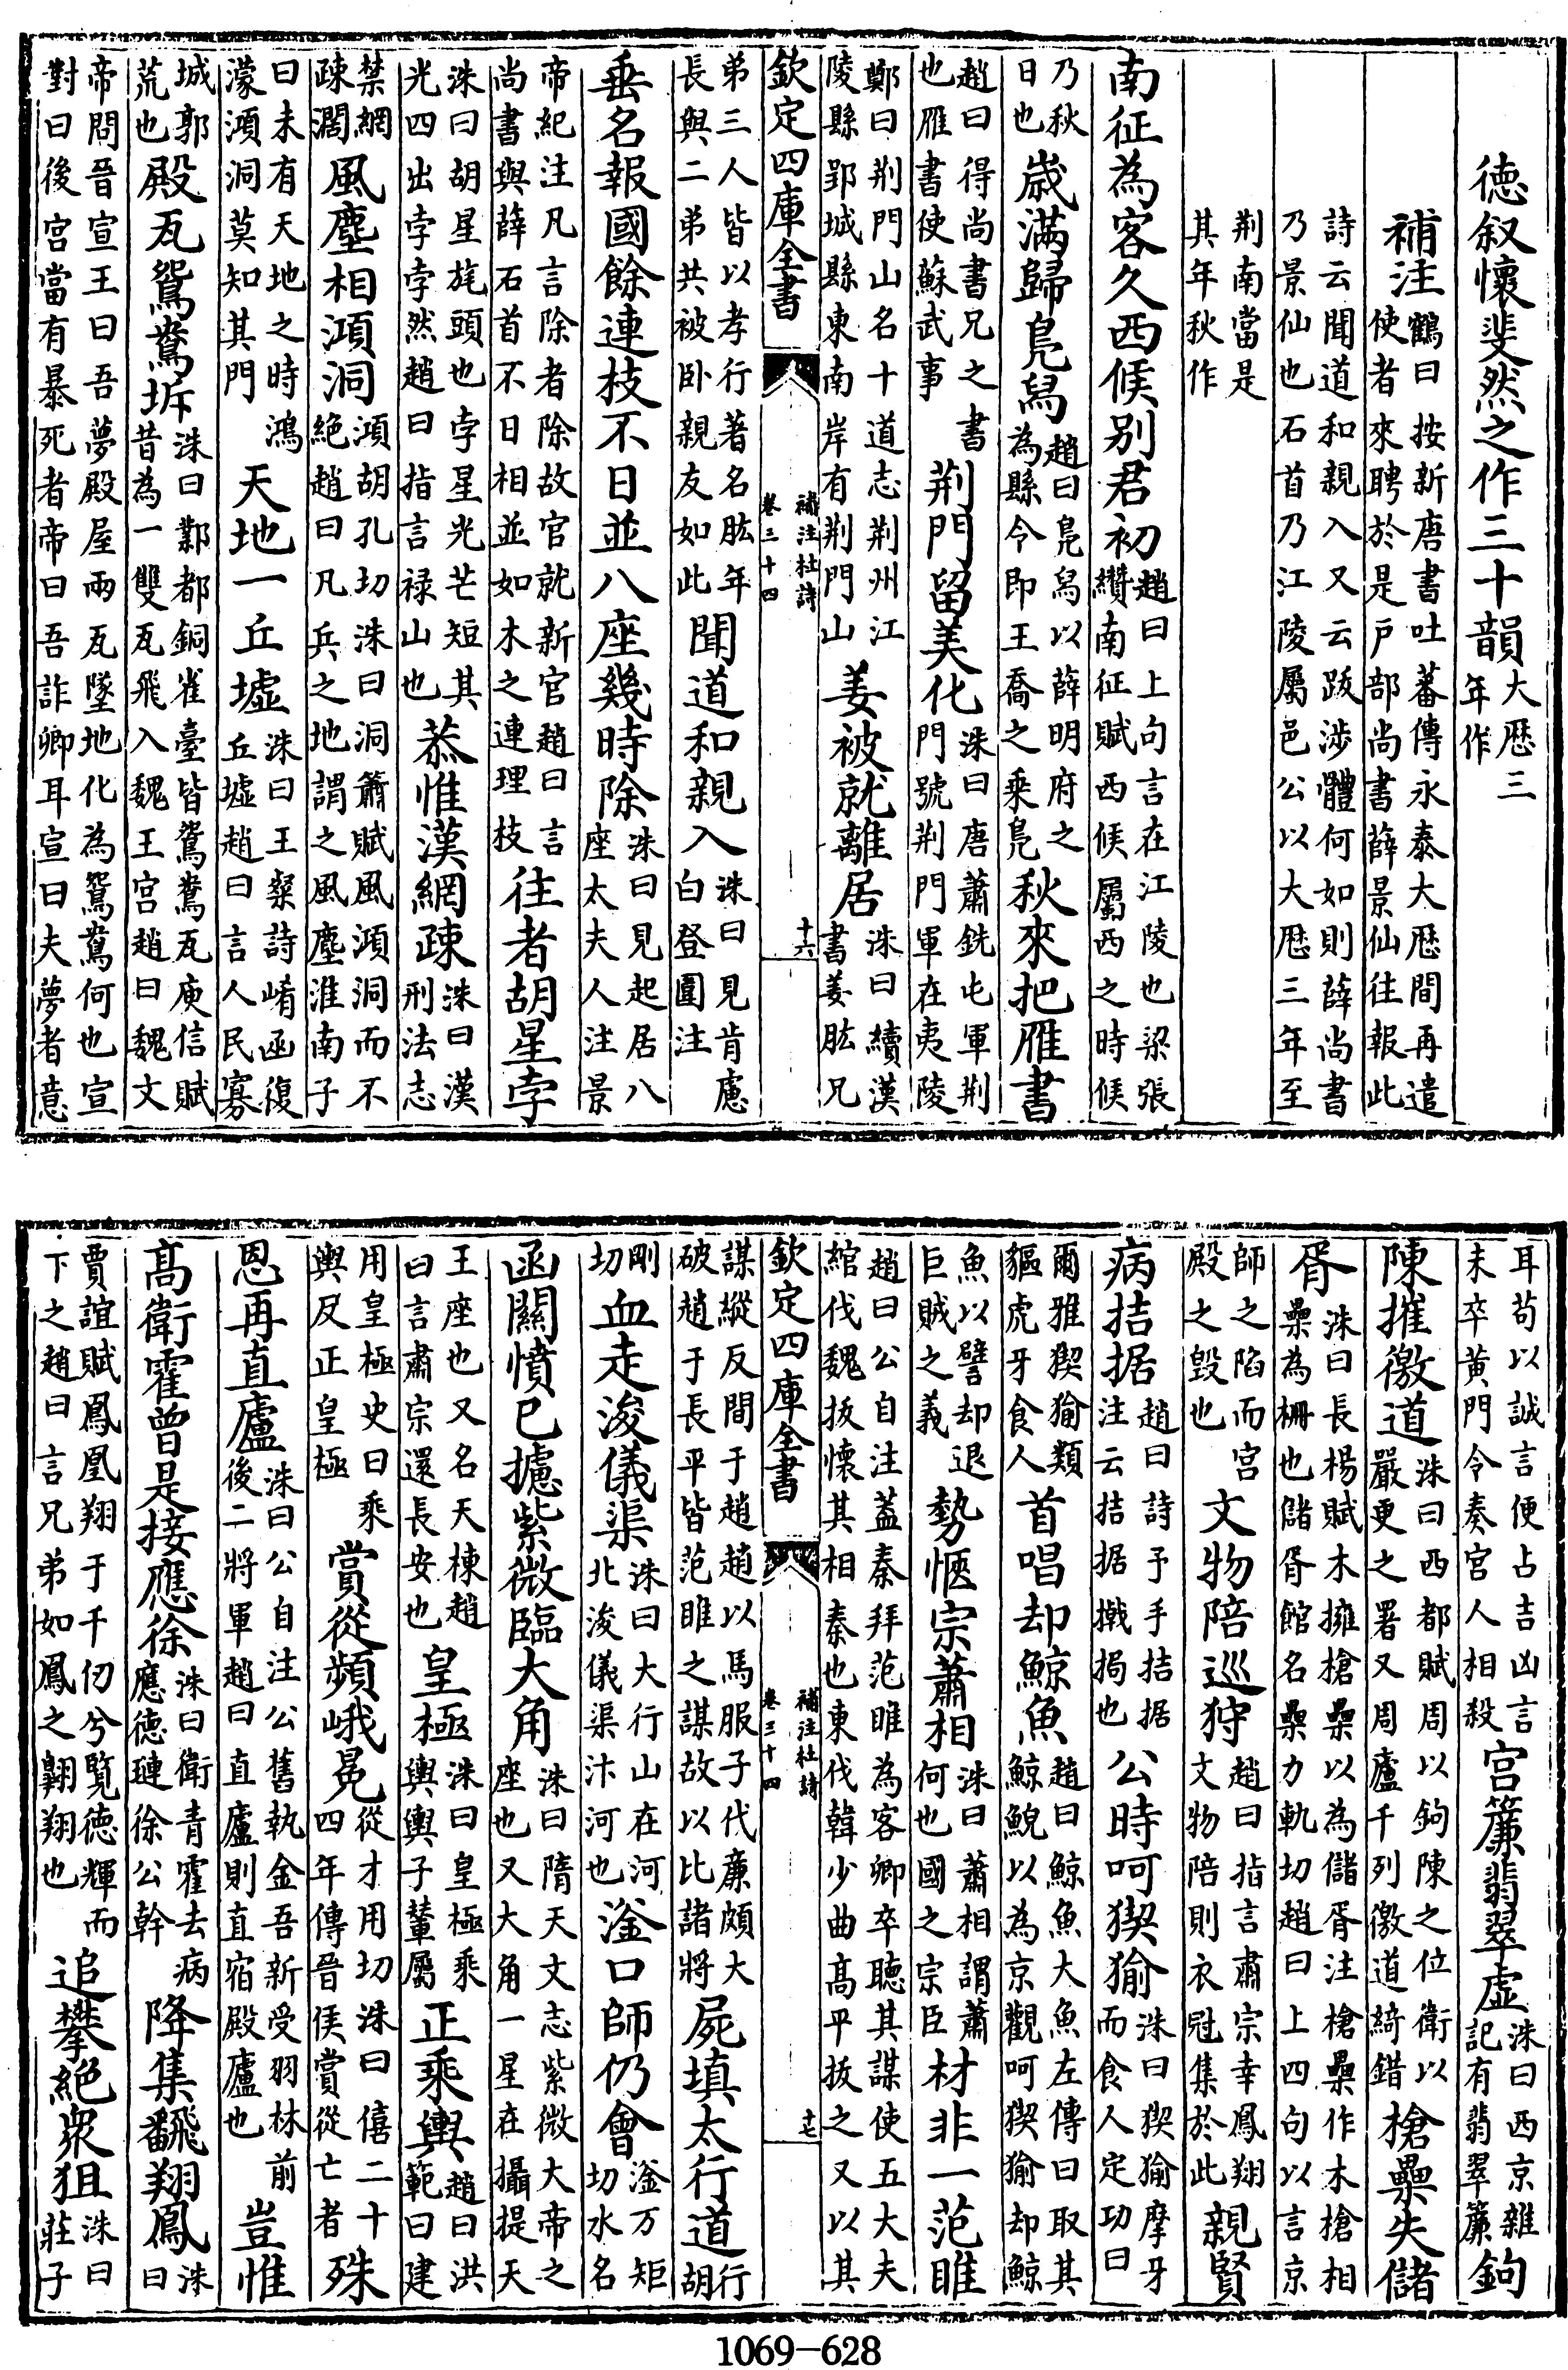 德叙懷斐然之作三十韻大厯三年作
補注鶴曰按新唐書吐蕃傳永泰大厯間再遣使者來聘於是戸部尚書薛景仙往報此
詩云聞道和親入又云跋涉體何如則薛尚書乃景仙也石首乃江陵屬邑公以大厯三年至
荆南當是其年秋作
南征為客久西候别君初趙曰上句言在江陵也梁張纘南征賦西候屬西之時候
乃秋日也歳滿歸鳧舄趙曰鳧舄以薛明府之為縣令即王喬之乘鳧秋來把雁書
趙曰得尚書兄之書也雁書使蘇武事荆門留美化洙曰唐蕭銑屯軍荆門號荆門軍在夷陵
鄭曰荆門山名十道志荆州江陵縣郢城縣東南岸有荆門山姜被就離居洙曰續漢書姜肱兄
欽定四庫全書
補注杜詩卷三十四
十六
弟三人皆以孝行著名肱年長與二弟共被卧親友如此聞道和親入洙曰見肯慮白登圍注
垂名報國餘連枝不日並八座幾時除洙曰見起居八座太夫人注景
帝紀注凡言除者除故官就新官趙曰言尚書與薛石首不日相並如木之連理枝往者胡星孛
洙曰胡星旄頭也孛星光芒短其光四出孛孛然趙曰指言禄山也恭惟漢網疎洙曰漢刑法志
禁網疎濶風塵相澒洞澒胡孔切洙曰洞簫賦風澒洞而不絶趙曰凡兵之地謂之風塵淮南子
曰未有天地之時鴻濛澒洞莫知其門天地一丘墟洙曰王粲詩崤函復丘墟趙曰言人民寡
城郭荒也殿瓦鴛鴦坼洙曰鄴都銅雀臺皆鴛鴦瓦庾信賦昔為一雙瓦飛入魏王宫趙曰魏文
帝問晉宣王曰吾夢殿屋兩瓦墜地化為鴛鴦何也宣對曰後宫當有暴死者帝曰吾詐卿耳宣曰夫夢者意
耳苟以誠言便占吉凶言未卒黄門令奏宫人相殺宫簾翡翠虚洙曰西京雜記有翡翠簾鉤
陳摧徼道洙曰西都賦周以鉤陳之位衛以嚴更之署又周廬千列徼道綺錯槍纍失儲
胥洙曰長楊賦木擁槍纍以為儲胥注槍纍作木槍相纍為栅也儲胥館名纍力軌切趙曰上四句以言京
師之陷而宫殿之毁也文物陪巡狩趙曰指言肅宗幸鳳翔文物陪則衣冠集於此親賢
病拮据趙曰詩予手拮据注云拮据撠挶也公時呵猰㺄洙曰猰㺄摩牙而食人定功曰
爾雅猰㺄類貙虎牙食人首唱却鯨魚趙曰鯨魚大魚左傳曰取其鯨鯢以為京觀呵猰㺄却鯨
魚以譬却退巨賊之義勢愜宗蕭相洙曰蕭相謂蕭何也國之宗臣材非一范睢
趙曰公自注蓋秦拜范睢為客卿卒聽其謀使五大夫綰伐魏拔懷其相秦也東伐韓少曲高平拔之又以其
欽定四庫全書
補注杜詩卷三十四
十七
謀縱反間于趙趙以馬服子代廉頗大破趙于長平皆范睢之謀故以比諸將屍填太行道行胡
剛切血走浚儀渠洙曰大行山在河北浚儀渠汴河也滏口師仍會滏万矩切水名
函關憤已攄紫微臨大角洙曰隋天文志紫微大帝之座也又大角一星在攝提天
王座也又名天棟趙曰言肅宗還長安也皇極洙曰皇極乘輿輿子輦屬正乘輿趙曰洪範曰建
用皇極史曰乘輿反正皇極賞從頻峨冕從才用切洙曰僖二十四年傳晉侯賞從亡者殊
恩再直廬洙曰公自注公舊執金吾新受羽林前後二將軍趙曰直廬則直宿殿廬也豈惟
髙衛霍曾是接應徐洙曰衛青霍去病應德璉徐公幹降集翻翔鳳洙曰
賈誼賦鳳凰翔于千仞兮覽徳輝而下之趙曰言兄弟如鳳之翺翔也追攀絶衆狙洙曰莊子
1069-628